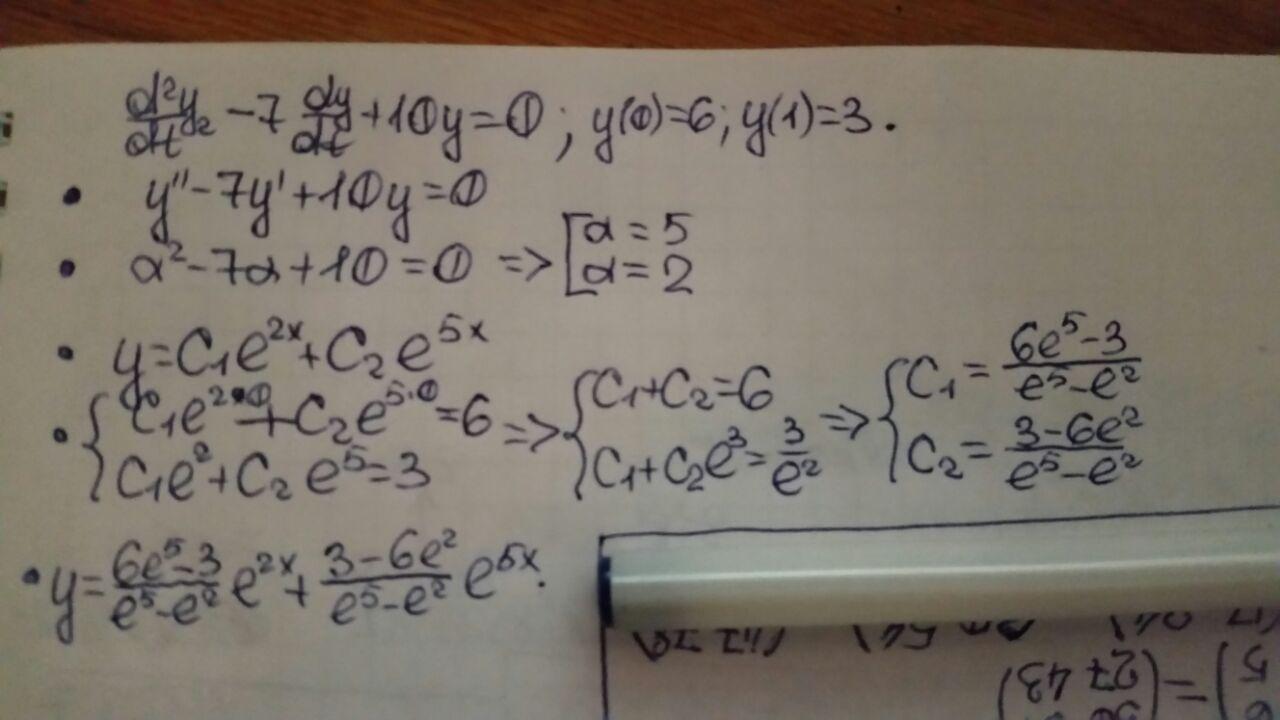 d²y/dt² - 7 dy/dt + 10y = 0 ; y(0)=6; y(1)=3.
• y'' - 7y' + 10y = 0
• α² - 7α + 10 = 0 => [α = 5 α = 2
• y = C₁e^{2x} + C₂e^{5x}
• {C₁e^{2·0} + C₂e^{5·0} = 6 C₁e² + C₂e⁵ = 3 => {C₁ + C₂ = 6 C₁ + C₂e³ = 3/e² => {C₁ = (6e⁵ - 3)/(e⁵ - e²) C₂ = (3 - 6e²)/(e⁵ - e²)
• y = (6e⁵ - 3)/(e⁵ - e²) e^{2x} + (3 - 6e²)/(e⁵ - e²) e^{5x}.